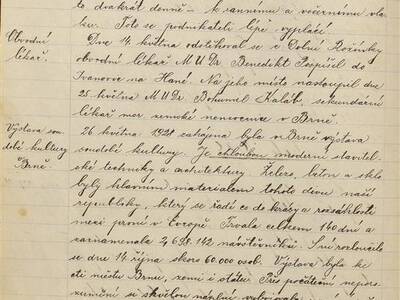 to dvakrát denně - k rannímu a večernímu vla-
ku. Toto se podnikateli lépe vyplácí.
Obvodní
lékař.
Dne 14. května odstěhoval se z Dolní Rožínky
obvodní lékař MUDr Benedikt Pospíšil do
Ivanovic na Hané. Na jeho místo nastoupil dne
25. května MUDr Bohumil Kaláb, sekundární
lékař mor. zemské nemocnice v Brně.
Výstava sou-
dobé kultury
v Brně.
26. května 1928 zahájena byla v Brně výstava
soudobé kultury. Je chloubou moderní stavitel-
ské techniky a architektury. Železo, beton a sklo
byly hlavním materialem tohoto divu naší
republiky, který se řadí co do krásy a rozsáhlosti
mezi první v Evropě. Trvala celkem 140 dní a
zaznamenala 2,698.142 návštěvníků. S ní rozloučilo
se dne 14. října skoro 60.000 osob. Výstava byla k
cti městu Brnu, zemi i státu. Přes počáteční neporo-
zumění si skvělou náplní